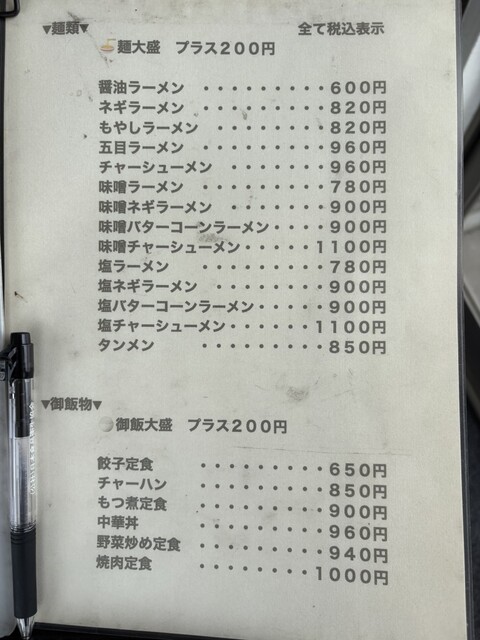 ▼麺類▼
全て税込表示
麺大盛 プラス200円
醤油ラーメン ・・・・・・・・・600円
ネギラーメン ・・・・・・・・・820円
もやしラーメン ・・・・・・・・・820円
五目ラーメン ・・・・・・・・・960円
チャーシューメン ・・・・・・・・960円
味噌ラーメン ・・・・・・・・・780円
味噌ネギラーメン ・・・・・・・900円
味噌バターコーンラーメン・・・・900円
味噌チャーシューメン・・・・・1100円
塩ラーメン ・・・・・・・・・780円
塩ネギラーメン ・・・・・・・・900円
塩バターコーンラーメン・・・・・900円
塩チャーシューメン・・・・・・1100円
タンメン ・・・・・・・・・850円
▼御飯物▼
御飯大盛 プラス200円
餃子定食 ・・・・・・・・・650円
チャーハン ・・・・・・・・・850円
もつ煮定食 ・・・・・・・・・900円
中華丼 ・・・・・・・・・960円
野菜炒め定食 ・・・・・・・・・940円
焼肉定食 ・・・・・・・・1000円